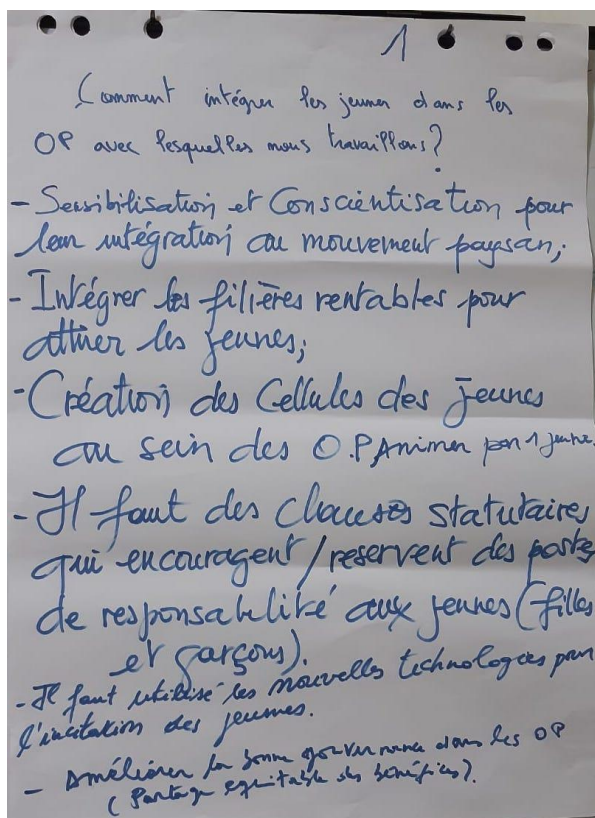 1
Comment intégrer les jeunes dans les
OP avec lesquelles nous travaillons?
- Sensibilisation et Conscientisation pour
leur intégration au mouvement paysan;
- Intégrer les filières rentables pour
attirer les jeunes;
- Création des Cellules des jeunes
au sein des O.P, Animer par 1 jeune.
- Il faut des clauses statutaires
qui encouragent/reservent des postes
de responsabilité aux jeunes (filles
et garçons).
- Il faut utilisé les nouvelles technologies pour
l'incitation des jeunes.
- Améliorer la bonne gouvernance dans les OP
(Partage equitable des bénéfices).